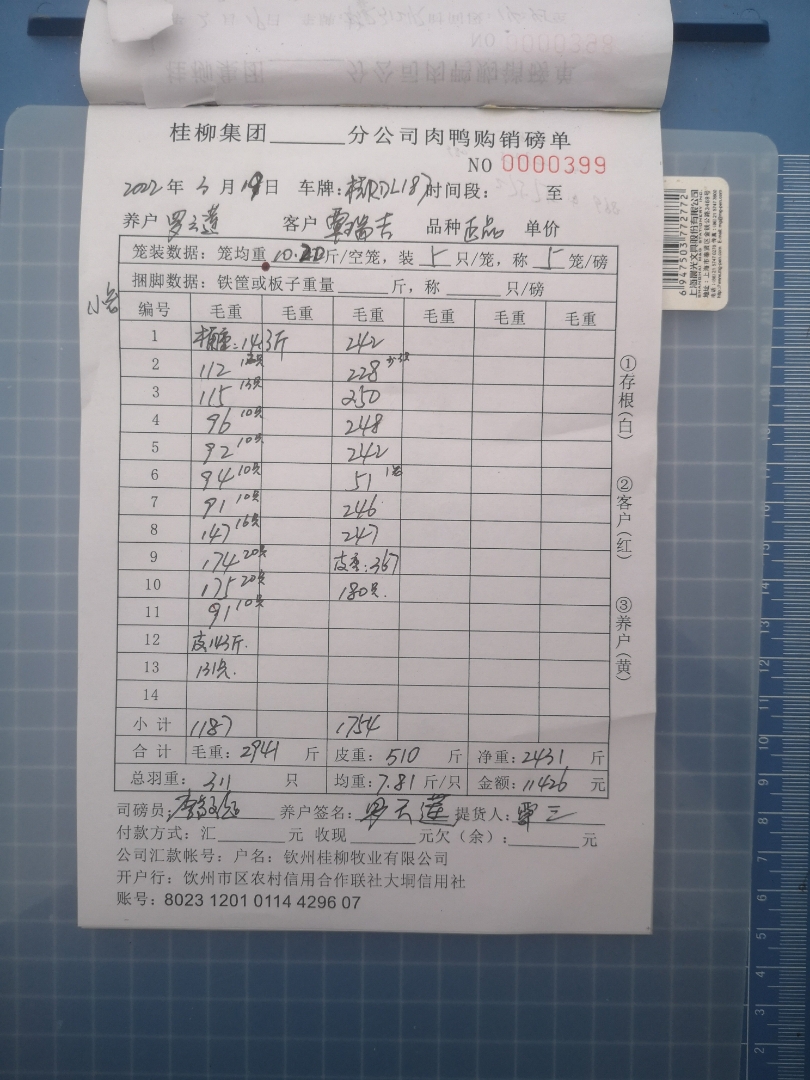 桂柳集团______分公司肉鸭购销磅单
NO 0000399
2022年3月19日 车牌:桂RDL187 时间段: 至
养户 罗云莲 客户 覃瑞吉 品种 正品 单价
笼装数据: 笼均重 10.20 斤/空笼, 装 5 只/笼, 称 5 笼/磅
捆脚数据: 铁筐或板子重量______斤, 称______只/磅
编号 毛重 毛重 毛重 毛重 毛重 毛重
1 桶重:14.3斤 242
2 112 228
3 115 13只 250
4 96 10只 248
5 92 10只 242
6 94 10只 51
7 91 10只 246
8 147 16只 247
9 174 20只 皮重:367
10 175 20只 180只.
11 91 10只
12 皮143斤.
13 131只.
14
小计 1187 1754
合计 毛重: 2941 斤 皮重: 510 斤 净重: 2431 斤
总羽重: 311 只 均重: 7.81 斤/只 金额: 11426 元
司磅员: 养户签名: 罗云莲 提货人: 覃三
付款方式: 汇______元 收现______元欠(余):______元
公司汇款帐号: 户名: 钦州桂柳牧业有限公司
开户行: 钦州市区农村信用合作联社大垌信用社
账号: 8023 1201 0114 4296 07
①存根(白)
②客户(红)
③养户(黄)
6 947503 772772
上海晨光文具股份有限公司